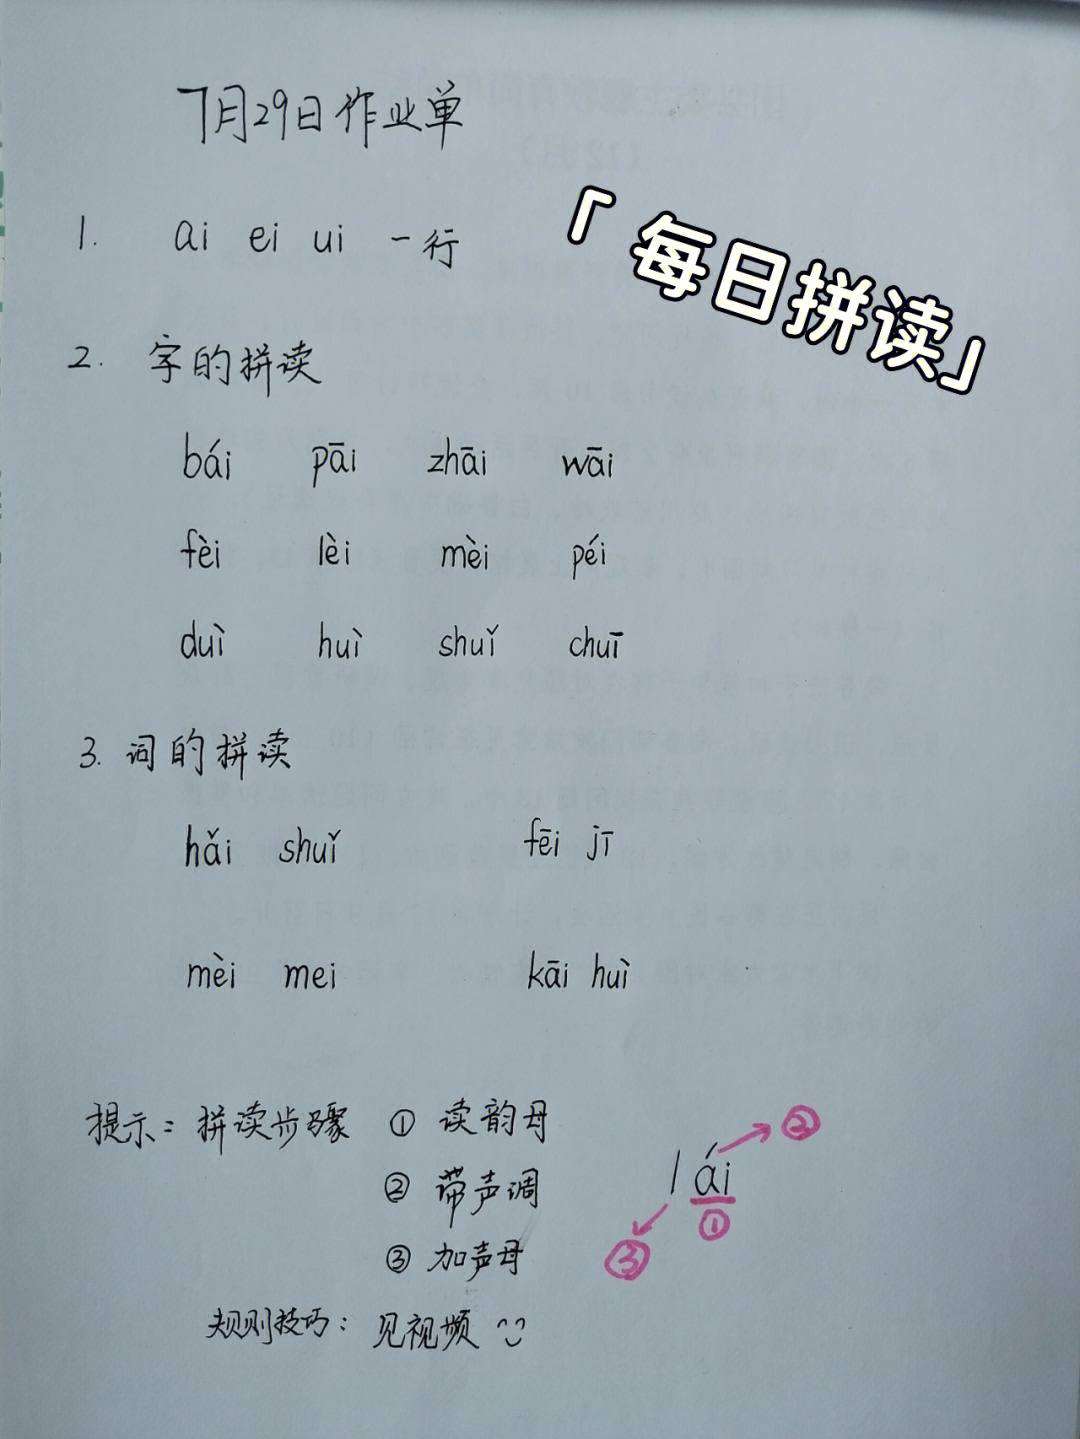 7月29日作业单
「每日拼读」
1. ai ei ui 一行
2. 字的拼读
bái pāi zhāi wāi
fèi lèi mèi péi
duì huì shuǐ chuī
3. 词的拼读
hǎi shuǐ fēi jī
mèi mei kāi huì
提示：拼读步骤 ① 读韵母
② 带声调
③ 加声母
lái
②
①
③
规则技巧：见视频